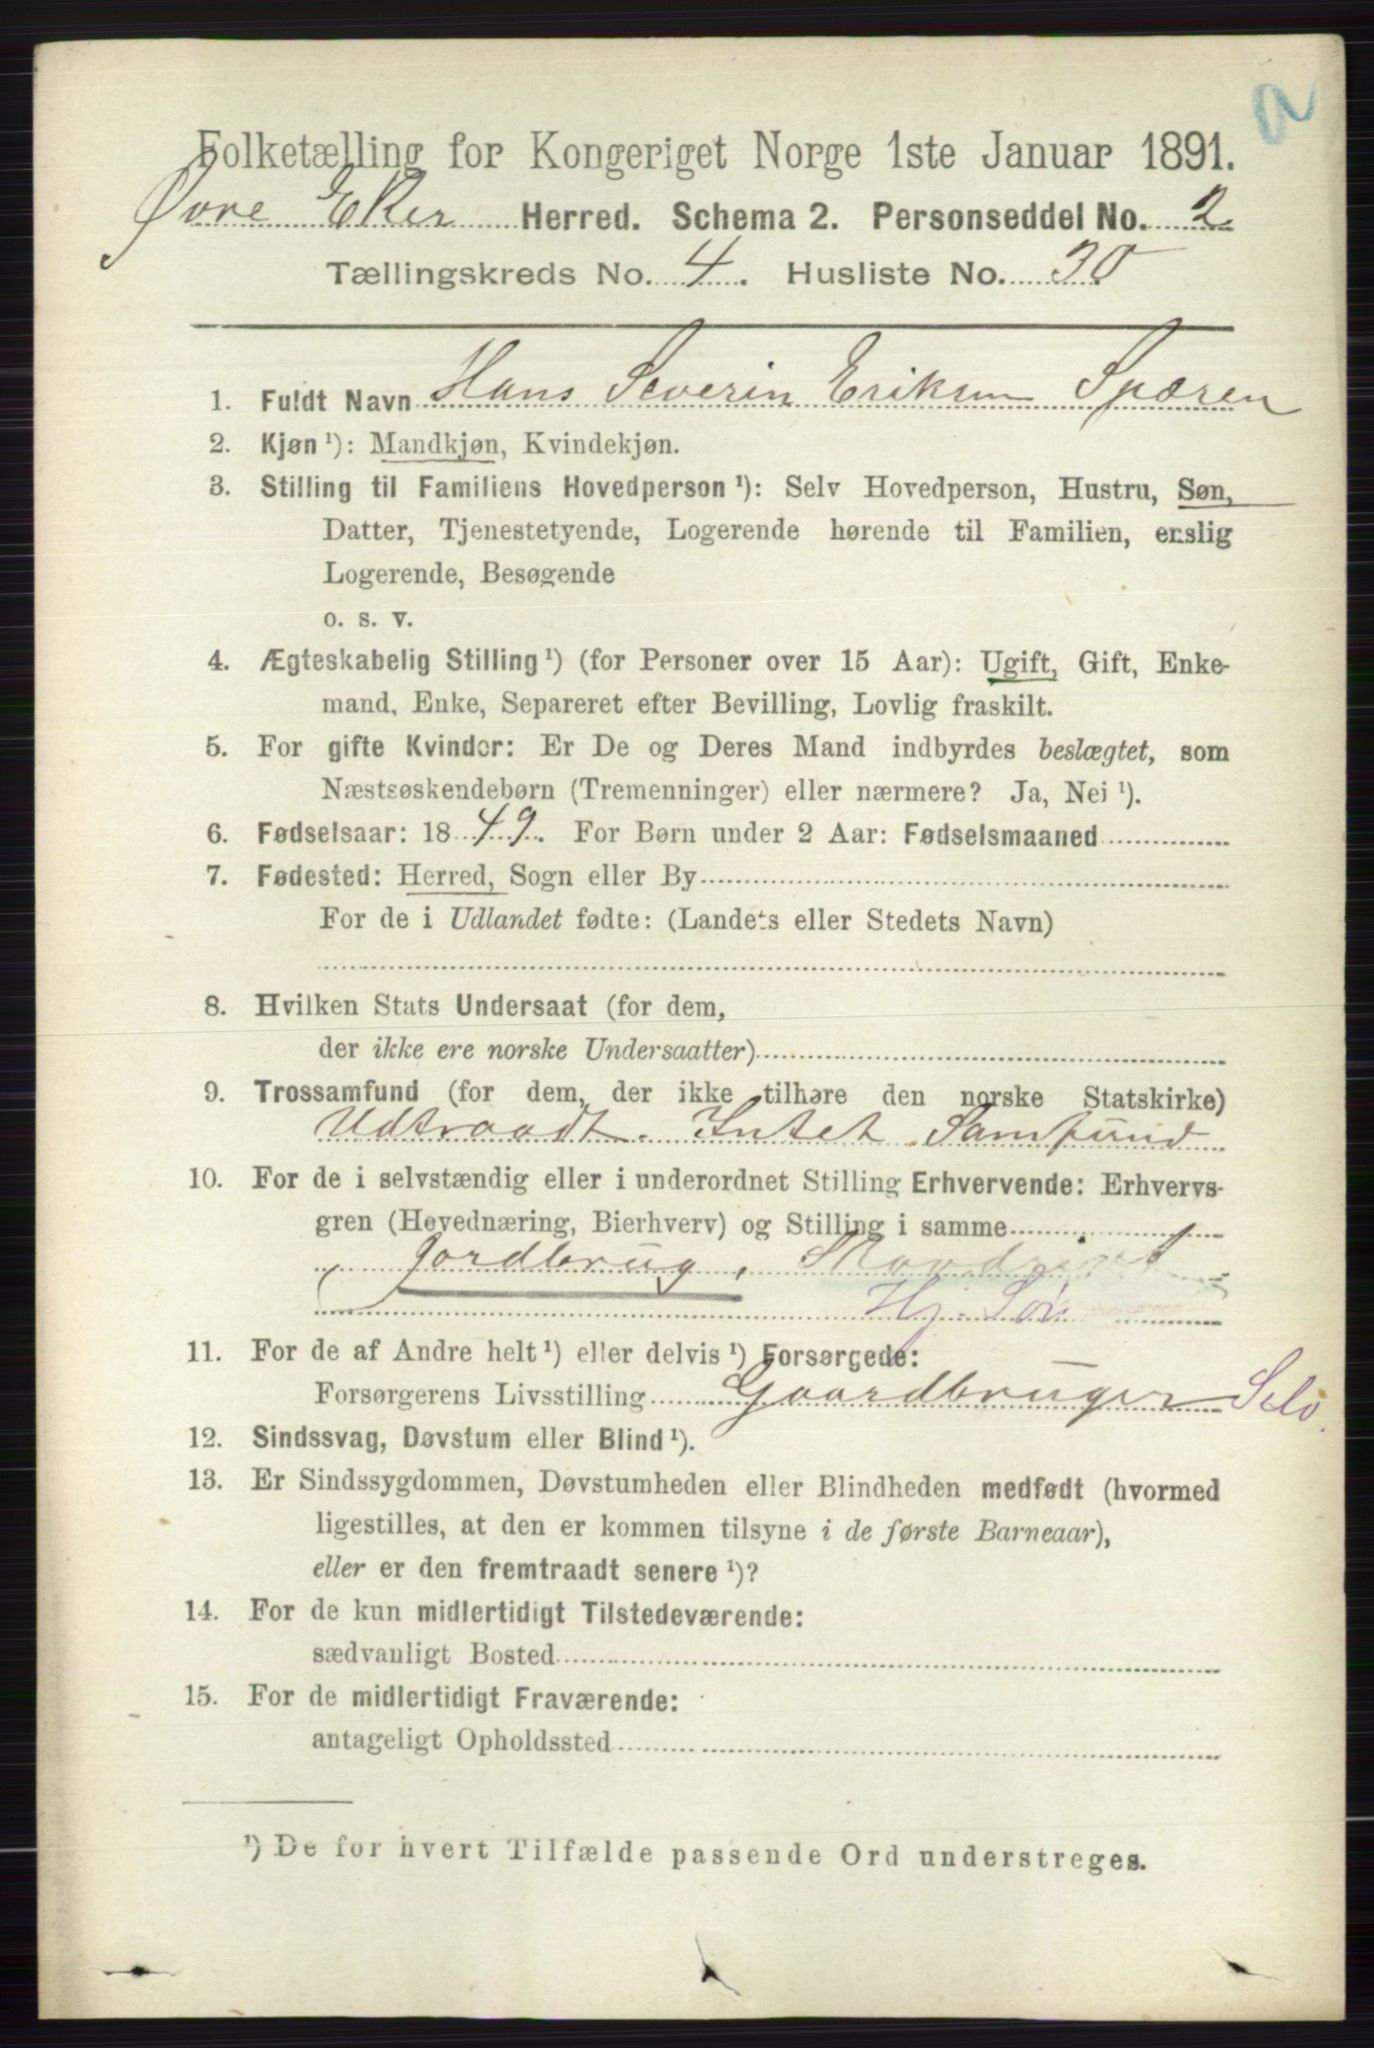 a
Folketælling for Kongeriget Norge 1ste Januar 1891.
Øvre Eker Herred. Schema 2. Personseddel No. 2
Tællingskreds No. 4. Husliste No. 30
1. Fuldt Navn Hans Severin Eriksen Spæren
2. Kjøn ¹): Mandkjøn, Kvindekjøn.
3. Stilling til Familiens Hovedperson ¹): Selv Hovedperson, Hustru, Søn,
Datter, Tjenestetyende, Logerende hørende til Familien, enslig
Logerende, Besøgende
o. s. v.
4. Ægteskabelig Stilling ¹) (for Personer over 15 Aar): Ugift, Gift, Enke-
mand, Enke, Separeret efter Bevilling, Lovlig fraskilt.
5. For gifte Kvinder: Er De og Deres Mand indbyrdes beslægtet, som
Næstsøskendebørn (Tremenninger) eller nærmere? Ja, Nei ¹).
6. Fødselsaar: 1849. For Børn under 2 Aar: Fødselsmaaned
7. Fødested: Herred, Sogn eller By
For de i Udlandet fødte: (Landets eller Stedets Navn)
8. Hvilken Stats Undersaat (for dem,
der ikke ere norske Undersaatter)
9. Trossamfund (for dem, der ikke tilhøre den norske Statskirke)
Udtraadt. Intet Samfund
10. For de i selvstændig eller i underordnet Stilling Erhvervende: Erhvervs-
gren (Hovednæring, Bierhverv) og Stilling i samme
Jordbrug, Skovdrift
Hj. Søn
11. For de af Andre helt ¹) eller delvis ¹) Forsørgede:
Forsørgerens Livsstilling Gaardbruger Selv.
12. Sindssvag, Døvstum eller Blind ¹).
13. Er Sindssygdommen, Døvstumheden eller Blindheden medfødt (hvormed
ligestilles, at den er kommen tilsyne i de første Barneaar),
eller er den fremtraadt senere ¹)?
14. For de kun midlertidigt Tilstedeværende:
sædvanligt Bosted
15. For de midlertidigt Fraværende:
antageligt Opholdssted
¹) De for hvert Tilfælde passende Ord understreges.